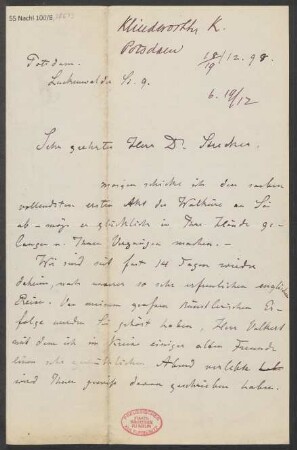 55 Nachl 100/B
Klindworth, K.
Potsdam
Potsdam. 18/19/12.98.
Luckenwalder St. 9. b. 19/12
Sehr geehrter Herr Dr. Strecker.
morgen schicke ich den soeben
vollendeten ersten Akt der Walküre an Sie
ab – möge er glücklich in Ihre Hände ge-
langen u. Ihnen Vergnügen machen. –
Wir sind seit fast 14 Tagen wieder
daheim, nach unserer so sehr erfreulichen englischen
Reise. Von meinem großen künstlerischen Er-
folge werden Sie gehört haben, Herr Volkert
mit dem ich im Kreise einiger alten Freunde
einen sehr gemüthlichen Abend verlebte
wird Ihnen gewiss davon geschrieben haben.